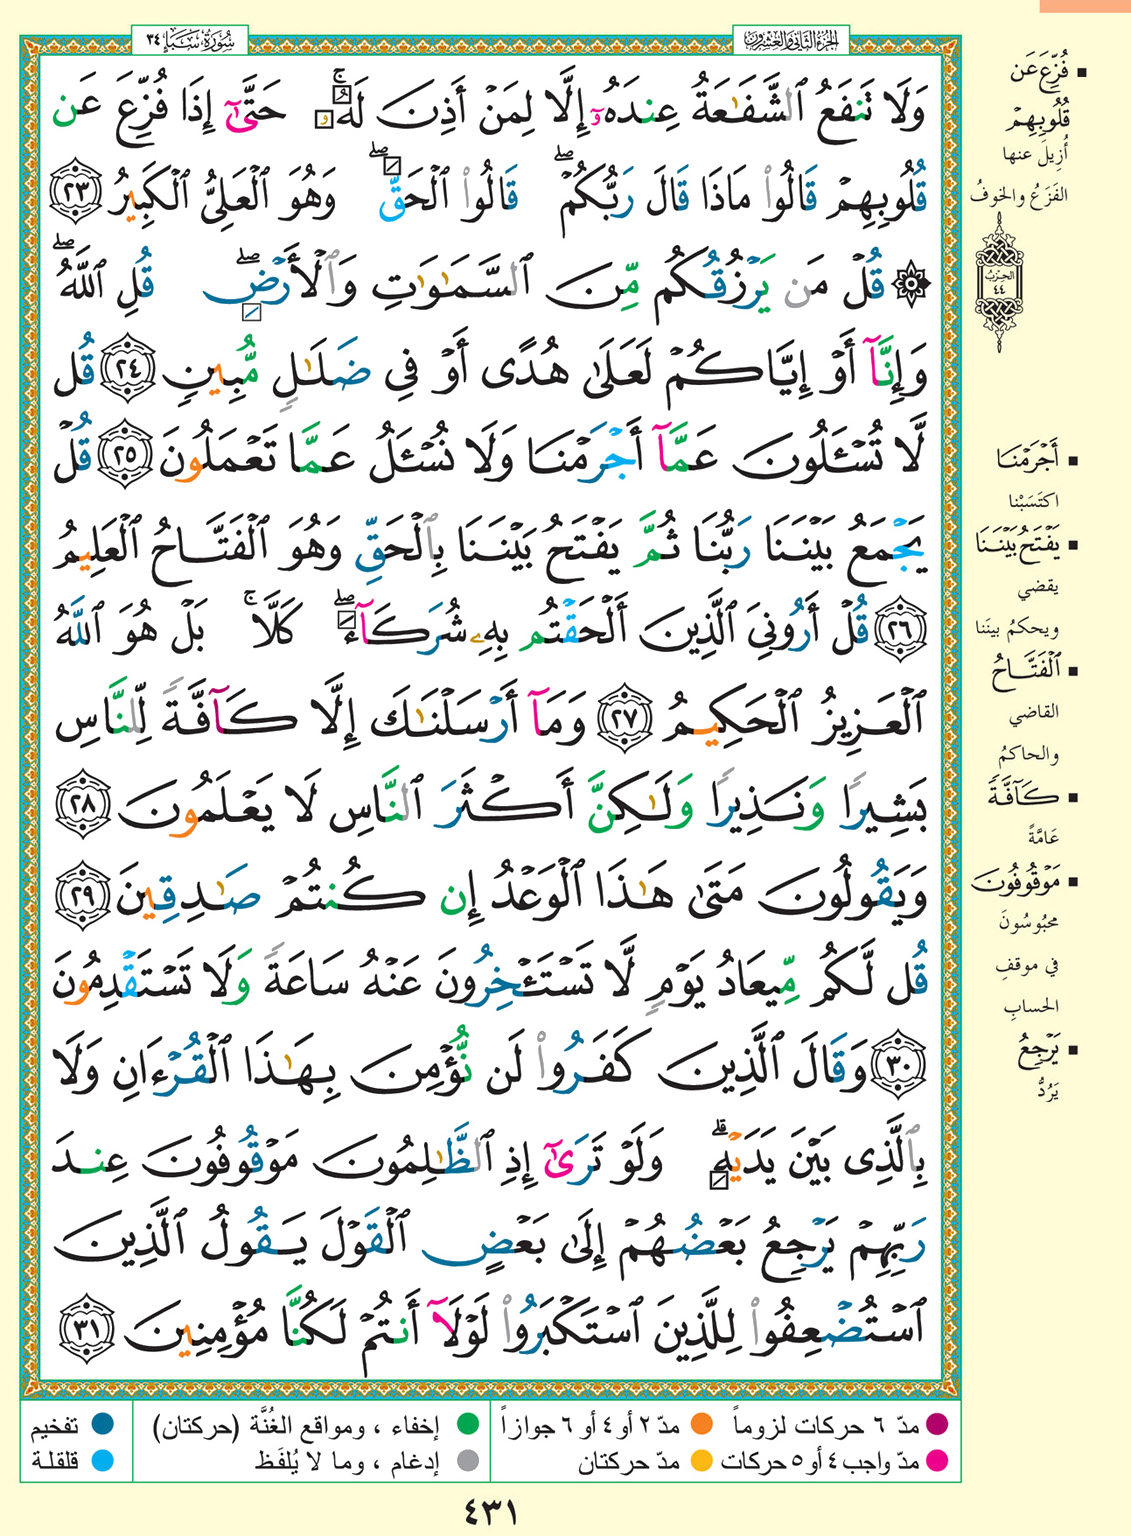 الجزء الثاني والعشرون
سُورَةُ سَبَإٍ ٣٤
وَلَا تَنفَعُ ٱلشَّفَٰعَةُ عِندَهُۥٓ إِلَّا لِمَنْ أَذِنَ لَهُۥ ۚ حَتَّىٰٓ إِذَا فُزِّعَ عَن
قُلُوبِهِمْ قَالُوا۟ مَاذَا قَالَ رَبُّكُمْ ۖ قَالُوا۟ ٱلْحَقَّ ۖ وَهُوَ ٱلْعَلِىُّ ٱلْكَبِيرُ ٢٣
۞ قُلْ مَن يَرْزُقُكُم مِّنَ ٱلسَّمَٰوَٰتِ وَٱلْأَرْضِ ۖ قُلِ ٱللَّهُ ۖ
وَإِنَّآ أَوْ إِيَّاكُمْ لَعَلَىٰ هُدًى أَوْ فِى ضَلَٰلٍ مُّبِينٍ ٢٤ قُل
لَّا تُسْـَٔلُونَ عَمَّآ أَجْرَمْنَا وَلَا نُسْـَٔلُ عَمَّا تَعْمَلُونَ ٢٥ قُلْ
يَجْمَعُ بَيْنَنَا رَبُّنَا ثُمَّ يَفْتَحُ بَيْنَنَا بِٱلْحَقِّ وَهُوَ ٱلْفَتَّاحُ ٱلْعَلِيمُ
٢٦ قُلْ أَرُونِىَ ٱلَّذِينَ أَلْحَقْتُم بِهِۦ شُرَكَآءَ ۖ كَلَّا ۚ بَلْ هُوَ ٱللَّهُ
ٱلْعَزِيزُ ٱلْحَكِيمُ ٢٧ وَمَآ أَرْسَلْنَٰكَ إِلَّا كَآفَّةً لِّلنَّاسِ
بَشِيرًا وَنَذِيرًا وَلَٰكِنَّ أَكْثَرَ ٱلنَّاسِ لَا يَعْلَمُونَ ٢٨
وَيَقُولُونَ مَتَىٰ هَٰذَا ٱلْوَعْدُ إِن كُنتُمْ صَٰدِقِينَ ٢٩
قُل لَّكُم مِّيعَادُ يَوْمٍ لَّا تَسْتَـْٔخِرُونَ عَنْهُ سَاعَةً وَلَا تَسْتَقْدِمُونَ
٣٠ وَقَالَ ٱلَّذِينَ كَفَرُوا۟ لَن نُّؤْمِنَ بِهَٰذَا ٱلْقُرْءَانِ وَلَا
بِٱلَّذِى بَيْنَ يَدَيْهِ ۗ وَلَوْ تَرَىٰٓ إِذِ ٱلظَّٰلِمُونَ مَوْقُوفُونَ عِندَ
رَبِّهِمْ يَرْجِعُ بَعْضُهُمْ إِلَىٰ بَعْضٍ ٱلْقَوْلَ يَقُولُ ٱلَّذِينَ
ٱسْتُضْعِفُوا۟ لِلَّذِينَ ٱسْتَكْبَرُوا۟ لَوْلَآ أَنتُمْ لَكُنَّا مُؤْمِنِينَ ٣١
فُزِّعَ عَن
قُلُوبِهِمْ
أُزِيلَ عنها
الفَزَعُ والخوفُ
الحزب
٤٤
أَجْرَمْنَا
اكتَسَبْنا
يَفْتَحُ بَيْنَنَا
يقضي
ويحكمُ بينَنا
ٱلْفَتَّاحُ
القاضي
والحاكمُ
كَآفَّةً
عَامَّةً
مَوْقُوفُونَ
محبُوسُونَ
في موقفِ
الحسابِ
يَرْجِعُ
يَرُدُّ
مدّ ٦ حركات لزوماً
مدّ ٢ أو ٤ أو ٦ جوازاً
إخفاء ، ومواقع الغُنَّة (حركتان)
تفخيم
مدّ واجب ٤ أو ٥ حركات
مدّ حركتان
إدغام ، وما لا يُلفَظ
قلقلة
٤٣١